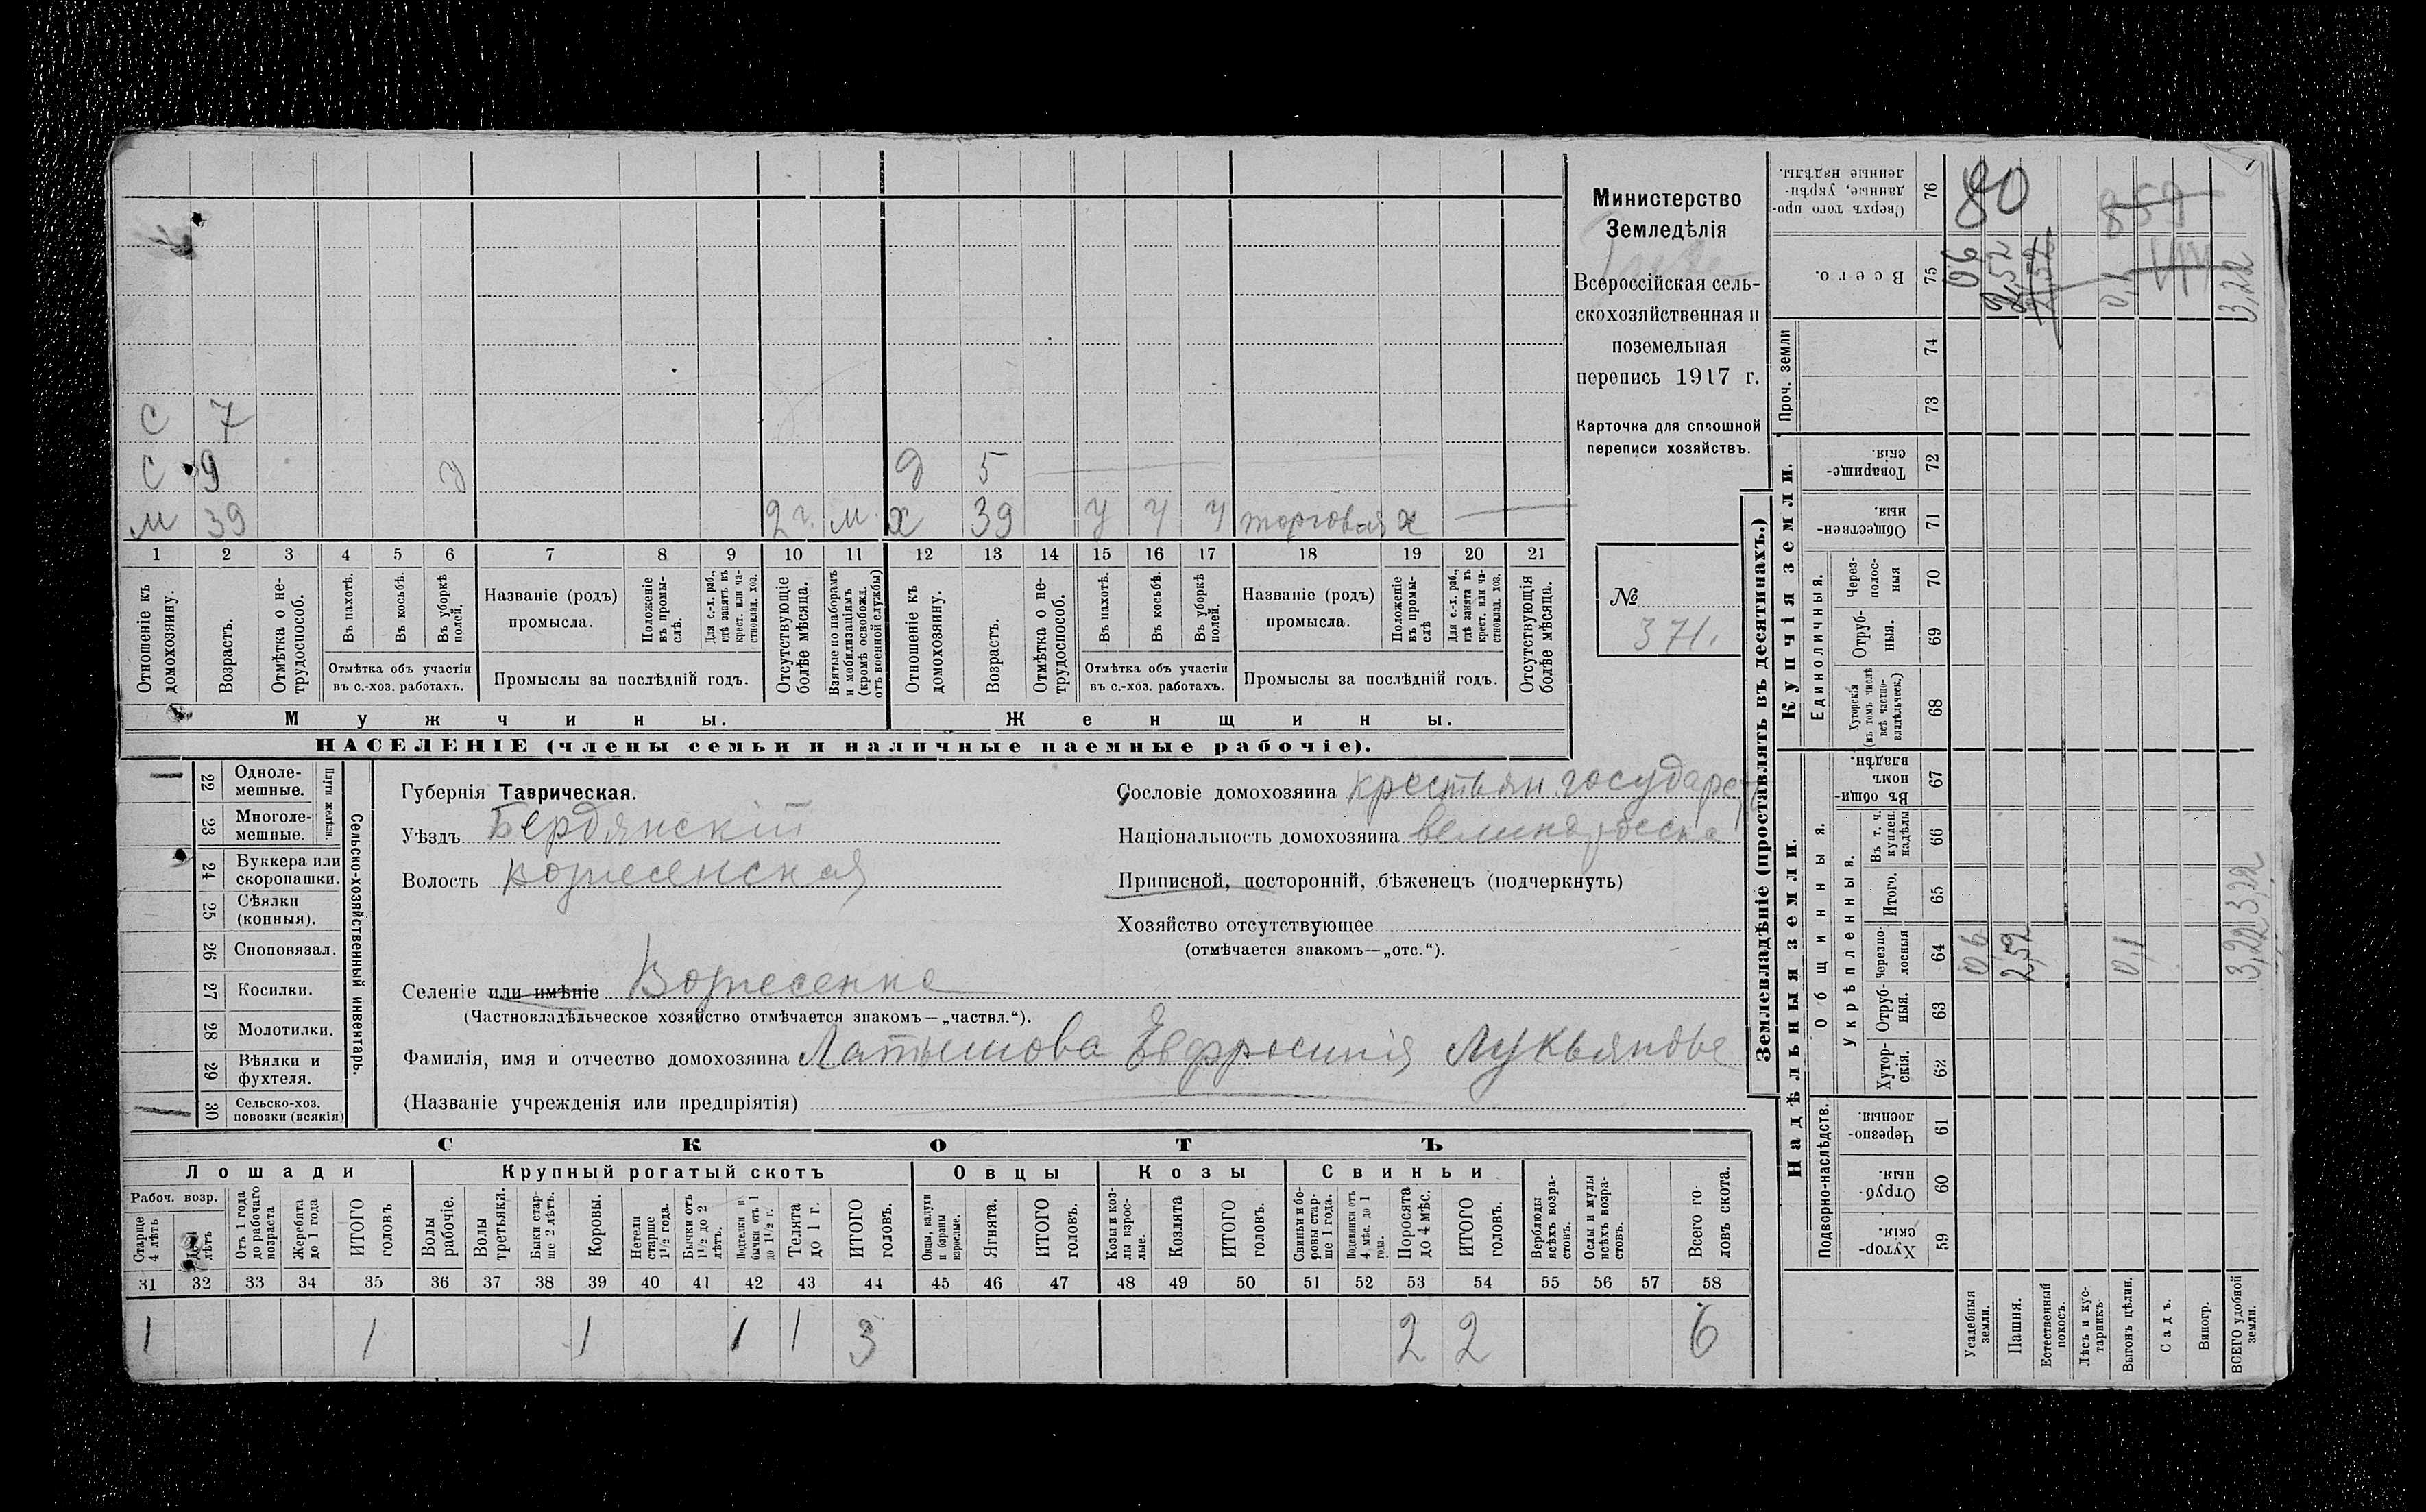 Министерство
Земледѣлія
Всероссійская сель-
скохозяйственная и
поземельная
перепись 1917 г.
Карточка для сплошной
переписи хозяйствъ.
№
371.
С 7
С 9 У Д 5
М 39 2 г. м. Х 39 У У У торговля х —
1 2 3 4 5 6 7 8 9 10 11 12 13 14 15 16 17 18 19 20 21
Отношеніе къ домохозяину.
Возрастъ.
Отмѣтка о не-трудоспособ.
Въ пахотѣ.
Въ косьбѣ.
Въ уборкѣ полей.
Отмѣтка объ участіи
въ с.-хоз. работахъ.
Названіе (родъ)
промысла.
Положеніе въ промы-слѣ.
Для с.-х. раб., гдѣ занятъ въ крест. или ча-стновлад. хоз.
Промыслы за послѣдній годъ.
Отсутствующіе болѣе мѣсяца.
Взятые по наборамъ и мобилизаціямъ (кромѣ освобожд. отъ военной службы)
Отношеніе къ домохозяину.
Возрастъ.
Отмѣтка о не-трудоспособ.
Въ пахотѣ.
Въ косьбѣ.
Въ уборкѣ полей.
Отмѣтка объ участіи
въ с.-хоз. работахъ.
Названіе (родъ)
промысла.
Положеніе въ промы-слѣ
Для с.-х. раб., гдѣ занята въ крест. или ча-стновлад. хоз.
Промыслы за послѣдній годъ.
Отсутствующія болѣе мѣсяца.
Мужчины. Женщины.
НАСЕЛЕНІЕ (члены семьи и наличные наемные рабочіе).
Сельско-хозяйственный инвентарь.
Плуги желѣзн.
22 Одноле-мешные.
23 Многоле-мешные.
24 Буккера или скоропашки.
25 Сѣялки (конныя).
26 Сноповязал.
27 Косилки.
28 Молотилки.
29 Вѣялки и фухтеля.
30 Сельско-хоз. повозки (всякія)
Губернія Таврическая.
Уѣздъ Бердянскій
Волость Вознесенская
Селеніе или имѣніе Вознесенка
(Частновладѣльческое хозяйство отмѣчается знакомъ—„частвл.“).
Фамилія, имя и отчество домохозяина Латышова Евфросинія Лукьяновна
(Названіе учрежденія или предпріятія)
Сословіе домохозяина крестьян. государс
Національность домохозяина великоросска
Приписной, посторонній, бѣженецъ (подчеркнуть)
Хозяйство отсутствующее
(отмѣчается знакомъ—„отс.“).
СКОТЪ
Лошади Крупный рогатый скотъ Овцы Козы Свиньи
Рабоч. возр.
Старше 4 лѣтъ
лѣтъ
Отъ 1 года до рабочаго возраста
Жеребята до 1 года
ИТОГО головъ
Волы рабочіе.
Волы третьяки.
Быки стар-ше 2 лѣтъ.
Коровы.
Нетели старше 1½ года.
Бычки отъ 1½ до 2 лѣтъ.
Подтелки и бычки отъ 1 до 1½ г.
Телята до 1 г.
ИТОГО головъ.
Овцы, валухи и бараны взрослые.
Ягнята.
ИТОГО головъ.
Козы и коз-лы взрос-лые.
Козлята
ИТОГО головъ.
Свиньи и бо-ровы стар-ше 1 года.
Подсвинки отъ 4 мѣс. до 1 года.
Поросята до 4 мѣс.
ИТОГО головъ.
Верблюды всѣхъ возра-стовъ.
Ослы и мулы всѣхъ возра-стовъ.
Всего го-ловъ скота.
31 32 33 34 35 36 37 38 39 40 41 42 43 44 45 46 47 48 49 50 51 52 53 54 55 56 57 58
1 1 1 1 1 3 2 2 6
Землевладѣніе (проставлять въ десятинахъ.)
Надѣльныя земли. Купчія земли. Проч. земли
Подворно-наслѣдств.
Общинныя.
Укрѣпленныя.
Единоличныя.
59 Хутор-скія.
60 Отруб-ныя.
61 Черезпо-лосныя.
62 Хутор-скія.
63 Отруб-ныя.
64 Черезпо-лосныя
65 Итого.
66 Въ т. ч. куплен. надѣлы
67 Въ общин-номъ владѣн.
68 Хуторскія (въ томъ числѣ всѣ частно-владѣльческ.)
69 Отруб-ныя.
70 Через-полос-ныя
71 Обществен-ныя.
72 Товарище-скія.
73
74
75 Всего.
76 Сверхъ того про-данные, укрѣп-ленные надѣлы.
Усадебныя земли. 0,6 0,6
Пашня. 2,52 2,52 2,52
Естественный покосъ.
Лѣсъ и кус-тарникъ.
Выгонъ цѣлин. 0,1 0,1
Садъ.
Виногр.
ВСЕГО удобной земли. 3,22 3,22 3,22
80
859